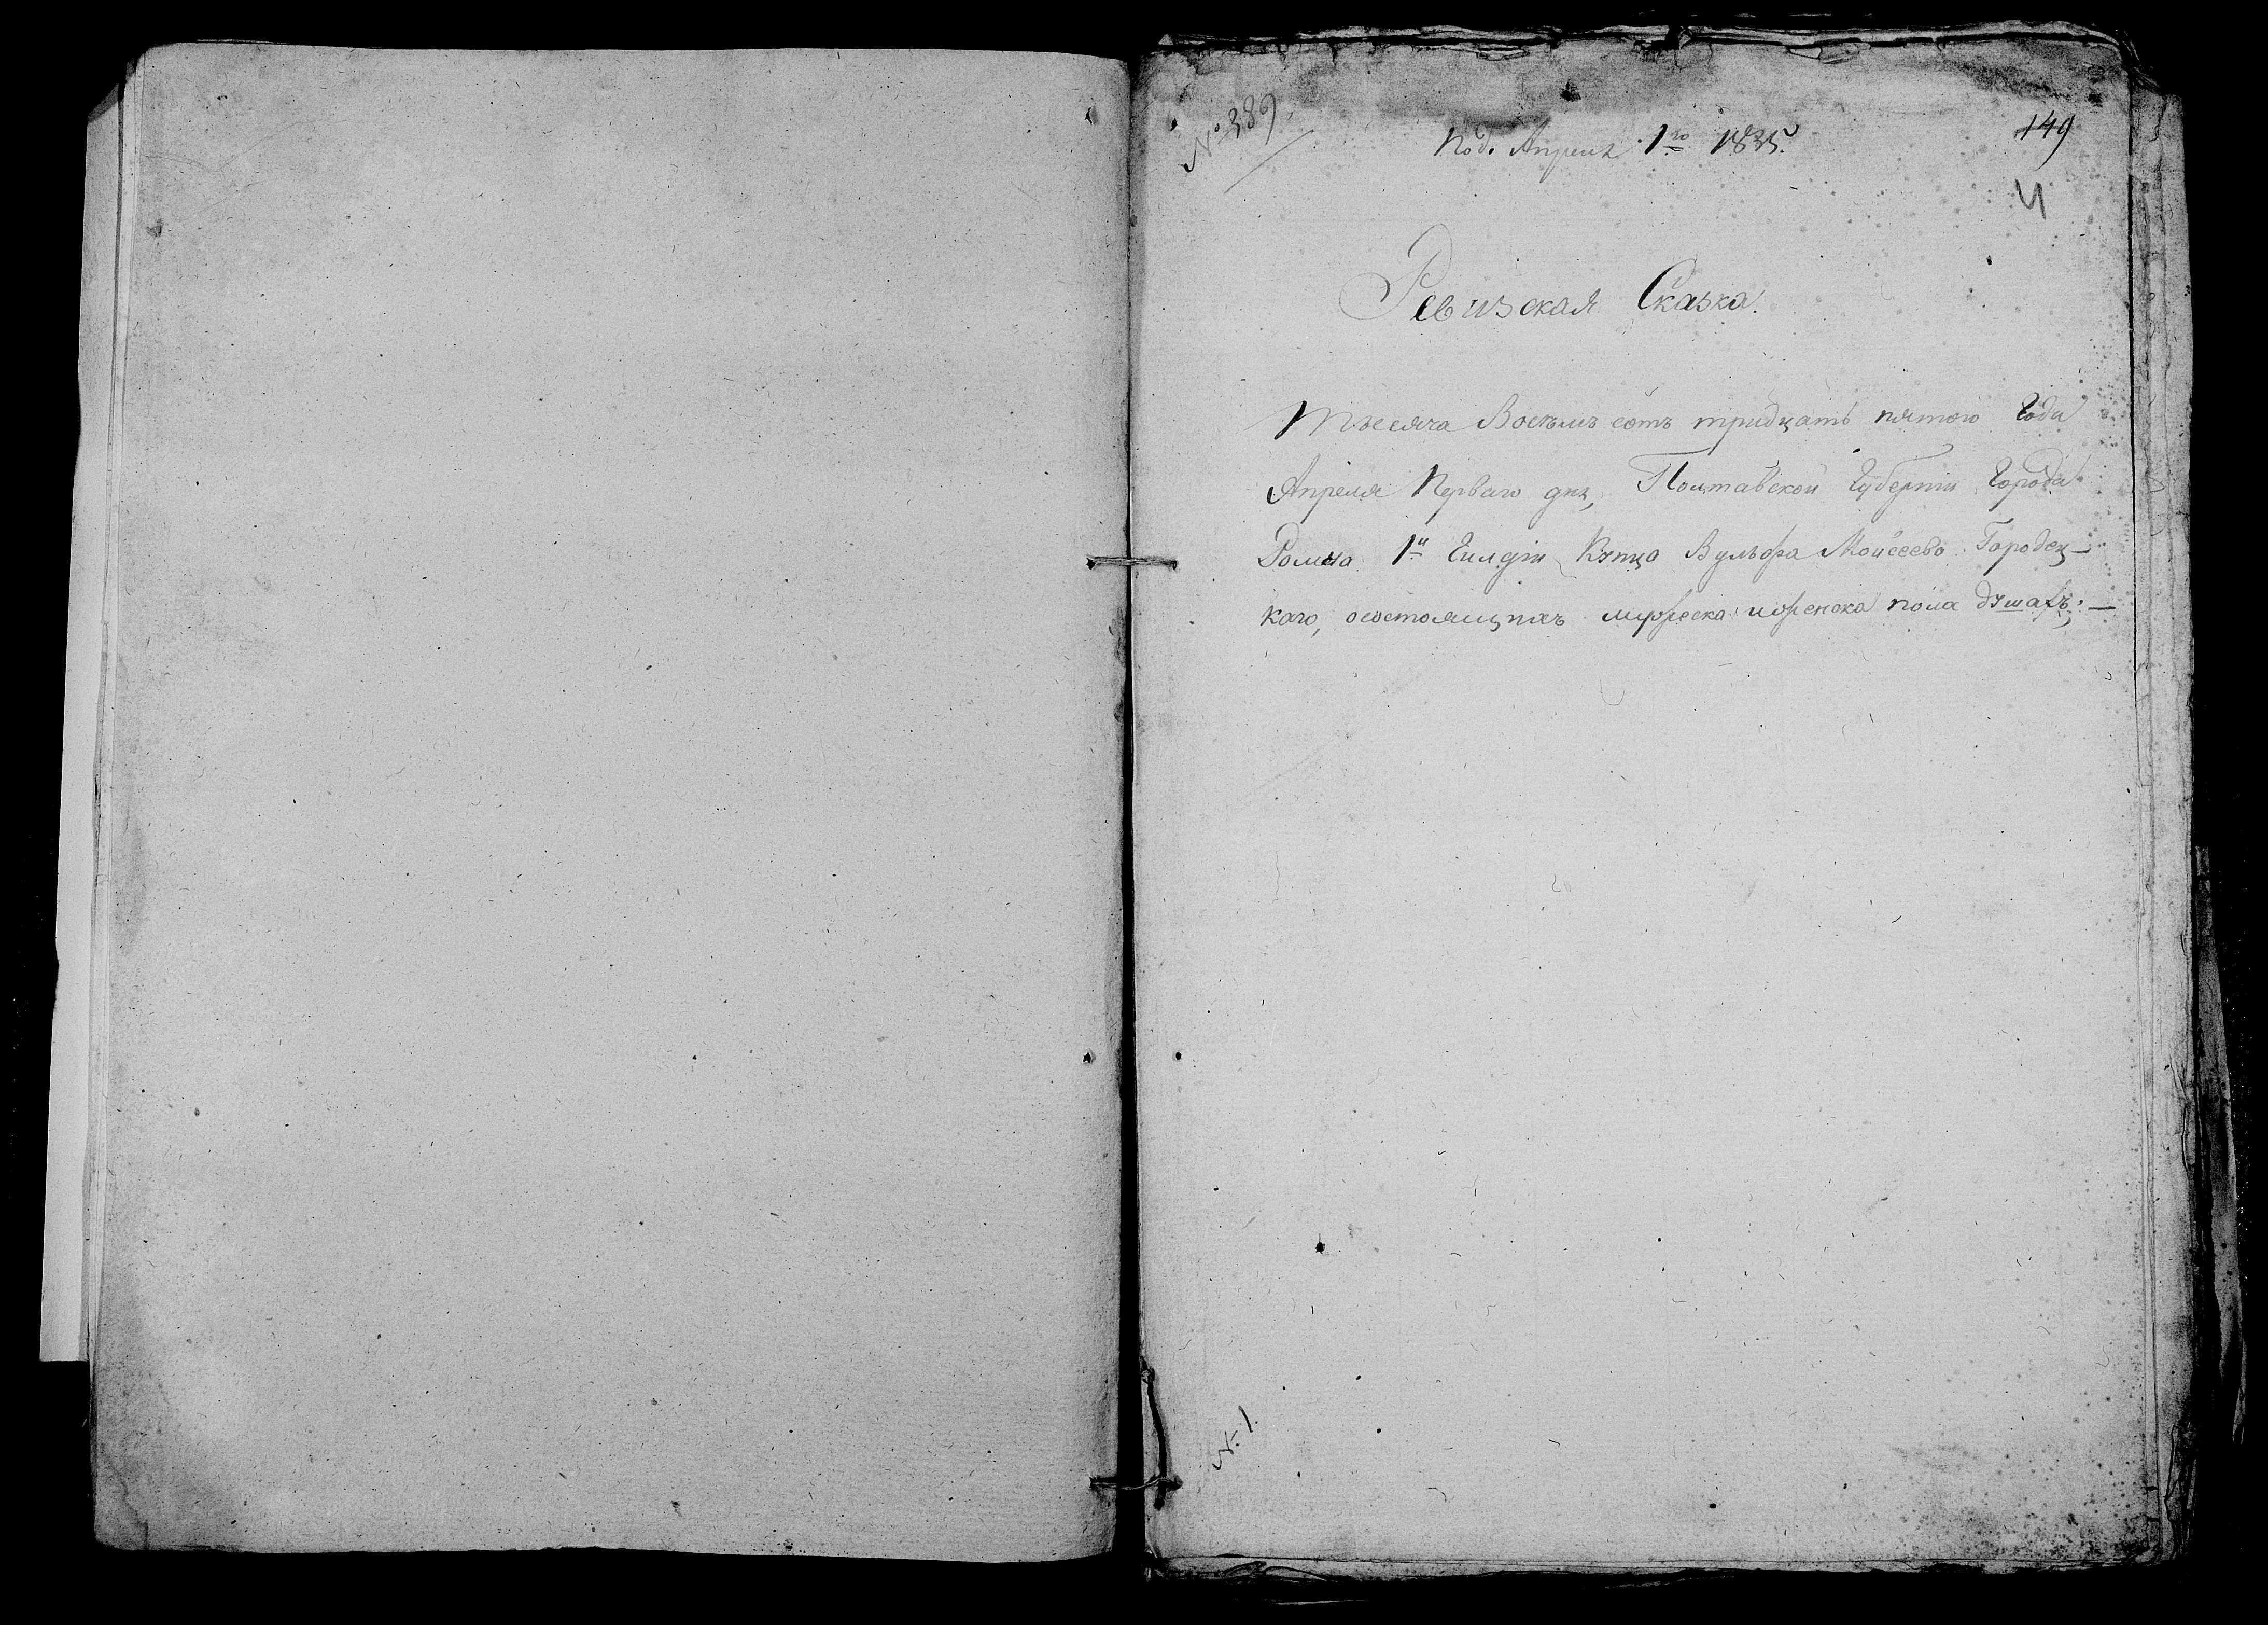 № 389.
Под. Апреля 1го 1835.
149
Ревизская Сказка.
Тысяча Восемь сотъ тридцать пятого Года
Апреля Перваго дня, Полтавской Губернiи Города
Ромна 1й Гилдiи Купца Вульфа Мойсеева Городец-
каго, осостоящихъ мужеска иженска пола душахъ;—
№ 1.